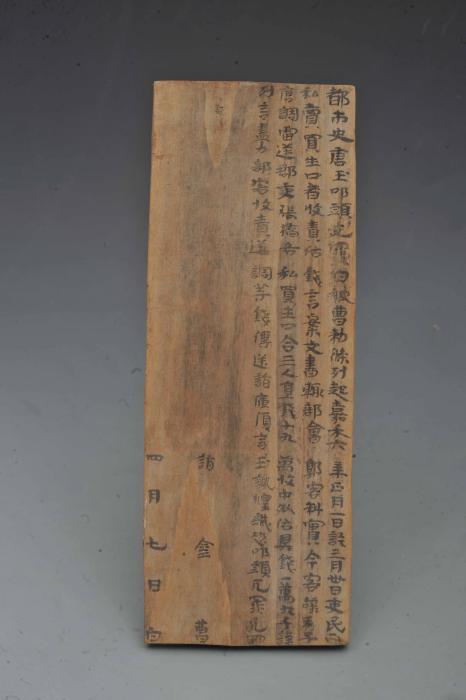 都市史唐玉叩頭死罪白被曹勑條列起嘉禾六年正月一日訖三月卅日吏民所
私賣買生口者收責估錢言案文書輒部會郭客料實今客辭男子
唐調雷逆郡吏張橋各私買生口合三人直錢十九萬收中外估具錢一萬九千謹
列言盡力部客收責逆調等錢傳送詣庫復言玉誠惶誠恐叩頭死罪死罪
詣金曹
四月七日白